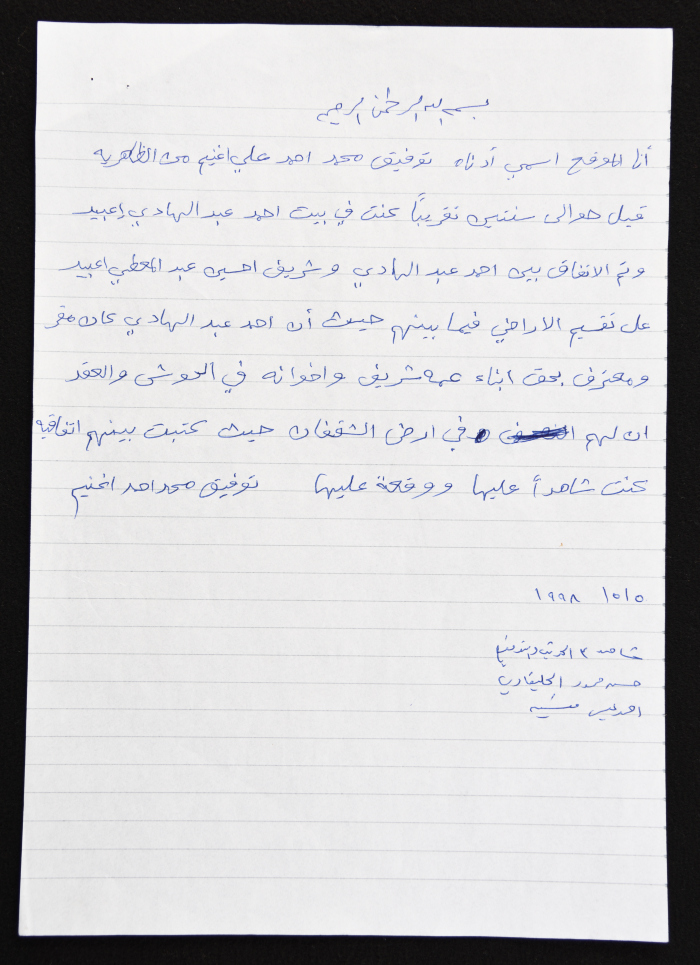 بسم الله الرحمن الرحيم
أنا الموقع اسمي أدناه توفيق محمد احمد علي اغنيم من الظاهريه
قبل حوالى سنتين تقريباً كنت في بيت احمد عبد الهادي إعبيد
وتم الاتفاق بين احمد عبد الهادي وشريف احسين عبد المعطي اعبيد
على تقسيم الاراضي فيما بينهم حيث أن احمد عبد الهادي كان مقر
ومعترف بحق ابناء عمه شريف واخوانه في الحوش والعقد
ان لهم في ارض الشقفان حيث كتبت بينهم اتفاقيه
كنت شاهداً عليها ووقعة عليها توفيق محمد احمد اغنيم
١٩٩٨ ١٥/٥
حسن محمود
احمد